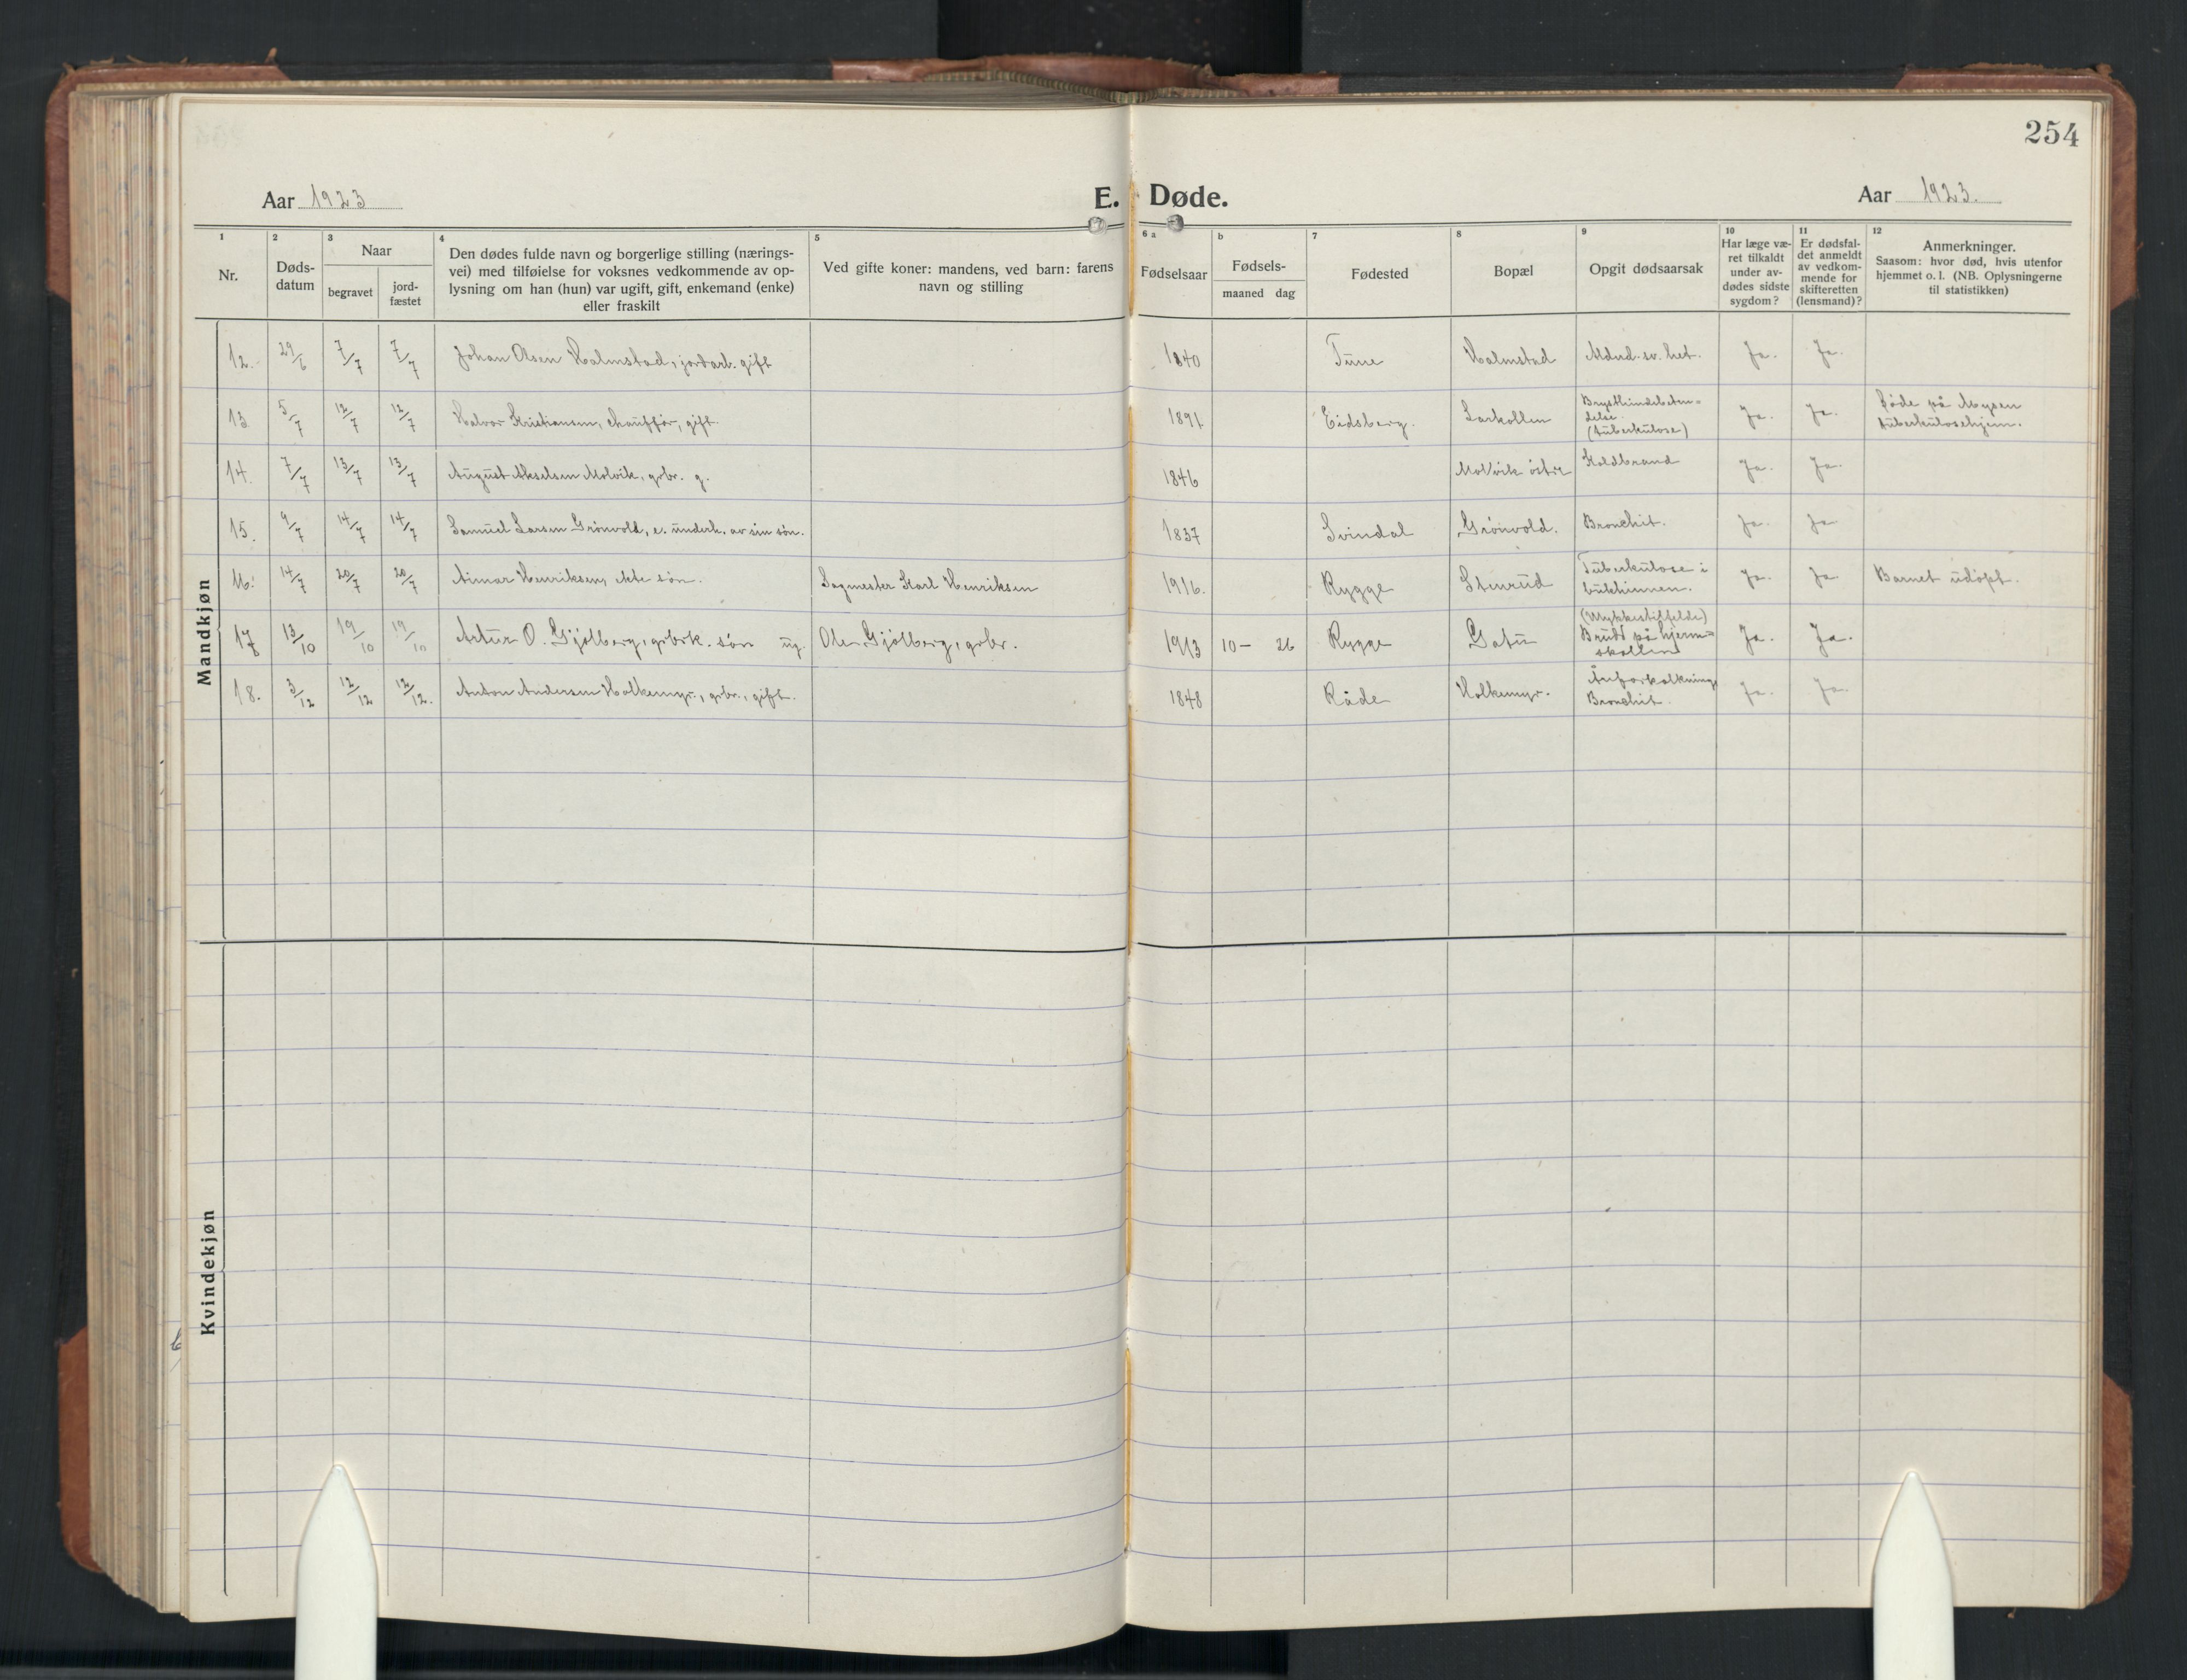 254
Aar 1923
E. Døde.
Aar 1923.
1 2 3 4 5 6 a b 7 8 9 10 11 12
Nr.
Døds-
datum
Naar
begravet
jord-
fæstet
Den dødes fulde navn og borgerlige stilling (nærings-
vei) med tilføielse for voksnes vedkommende av op-
lysning om han (hun) var ugift, gift, enkemand (enke)
eller fraskilt
Ved gifte koner: mandens, ved barn: farens
navn og stilling
Fødselsaar
Fødsels-
maaned dag
Fødested
Bopæl
Opgit dødsaarsak
Har læge væ-
ret tilkaldt
under av-
dødes sidste
sygdom?
Er dødsfal-
det anmeldt
av vedkom-
mende for
skifteretten
(lensmand)?
Anmerkninger.
Saasom: hvor død, hvis utenfor
hjemmet o. l. (NB. Oplysningerne
til statistikken)
Mandkjøn
12. 29/6 7/7 7/7 Johan Olsen Halmstad, jordarb. gift 1840 Tune Halmstad Alderd. sv. het. Ja. Ja.
13. 5/7 12/7 12/7 Halvor Kristiansen, chauffør, gift. 1891 Eidsberg. Larkollen Brysthindebeten=
delse.
(tuberkulose) Ja. Ja. Døde på Mysen
tuberkulosehjem.
14. 7/7 13/7 13/7 August Akselsen Molvik, grbr. g. 1846 Molvik østre Koldbrand Ja. Ja.
15. 9/7 14/7 14/7 Samuel Larsen Grønvold, e. underh. av sin søn. 1837 Svindal Grønvold. Bronchit. Ja. Ja
16. 14/7 20/7 20/7 Aimar Henriksen, ekte søn. Sagmester Karl Henriksen 1916. Rygge Stenrud Tuberkulose i
bukhinnen. Ja. Ja Barnet udøpt.
17 13/10 19/10 19/10 Artur O. Gjølberg, grbrk. søn ug. Ole Gjølberg, grbr. 1913 10 - 26 Rygge Gatu (Ulykkestilfelde)
Brudd på hjerne=
skallen Ja. Ja.
18. 3/12 12/12 12/12. Anton Andersen Holkemyr., grbr., gift. 1848 Råde Holkemyr. Åreforkalkning
Bronchit. Ja. Ja.
Kvindekjøn